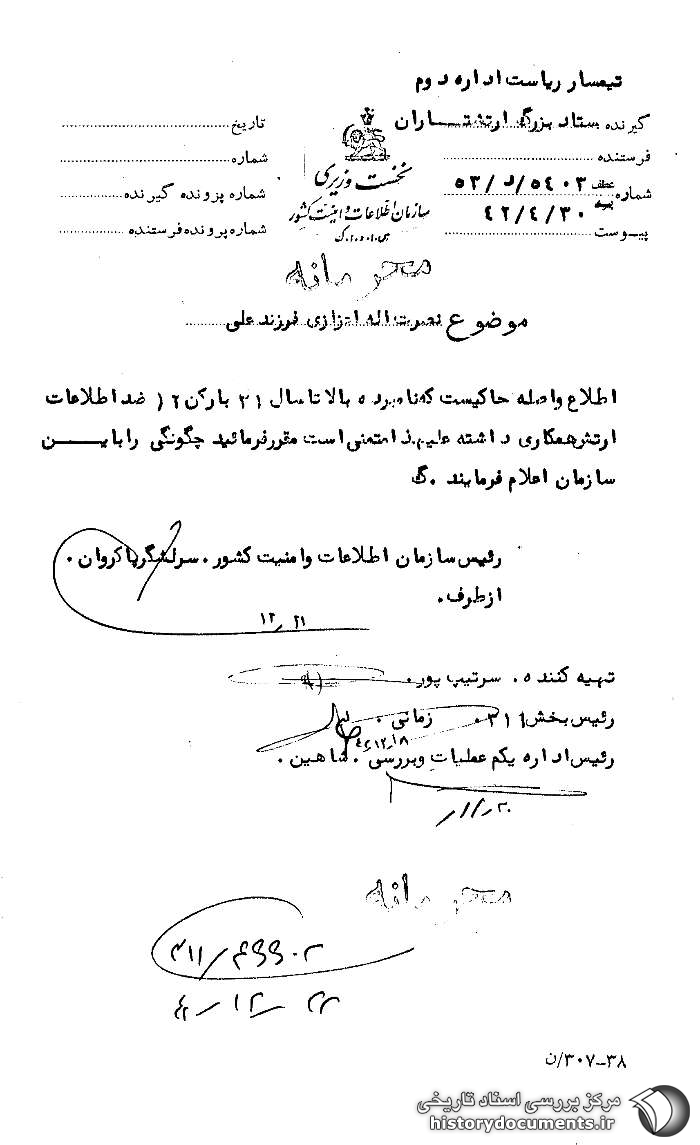 تیمسار ریاست اداره دوم
گیرنده ستاد بزرگ ارتشتاران
فرستنده
شماره عطف ۵۴۰۳/د/۵۳
۴۲/۴/۳۰
پیوست
نخست وزیری
سازمان اطلاعات و امنیت کشور
س.ا.و.ا.ک
تاریخ
شماره
شماره پرونده گیرنده
شماره پرونده فرستنده
محرمانه
موضوع نصرت اله اعزازی فرزند علی
اطلاع واصله حاکیست که نامبرده بالا تا سال ۲۱ با رکن ۲( ضد اطلاعات
ارتش همکاری داشته علیهذا متمنی است مقرر فرمائید چگونگی را باین
سازمان اعلام فرمایند .گ
رئیس سازمان اطلاعات و امنیت کشور . سرلشگر پاکروان .
از طرف .
۱۲/۲۱
تهیه کننده . سرتیپ پور .
رئیس بخش ۲۱۱ . زمانی .
۴۲/۱۲/۱۸
رئیس اداره یکم عملیات و بررسی . شاهین .
محرمانه
۳۱۱/۴۹۹۰۲
۴۲/۱۲/۲۲
۳۰۷-۳۸/ن
مرکز بررسی اسناد تاریخی
historydocuments.ir